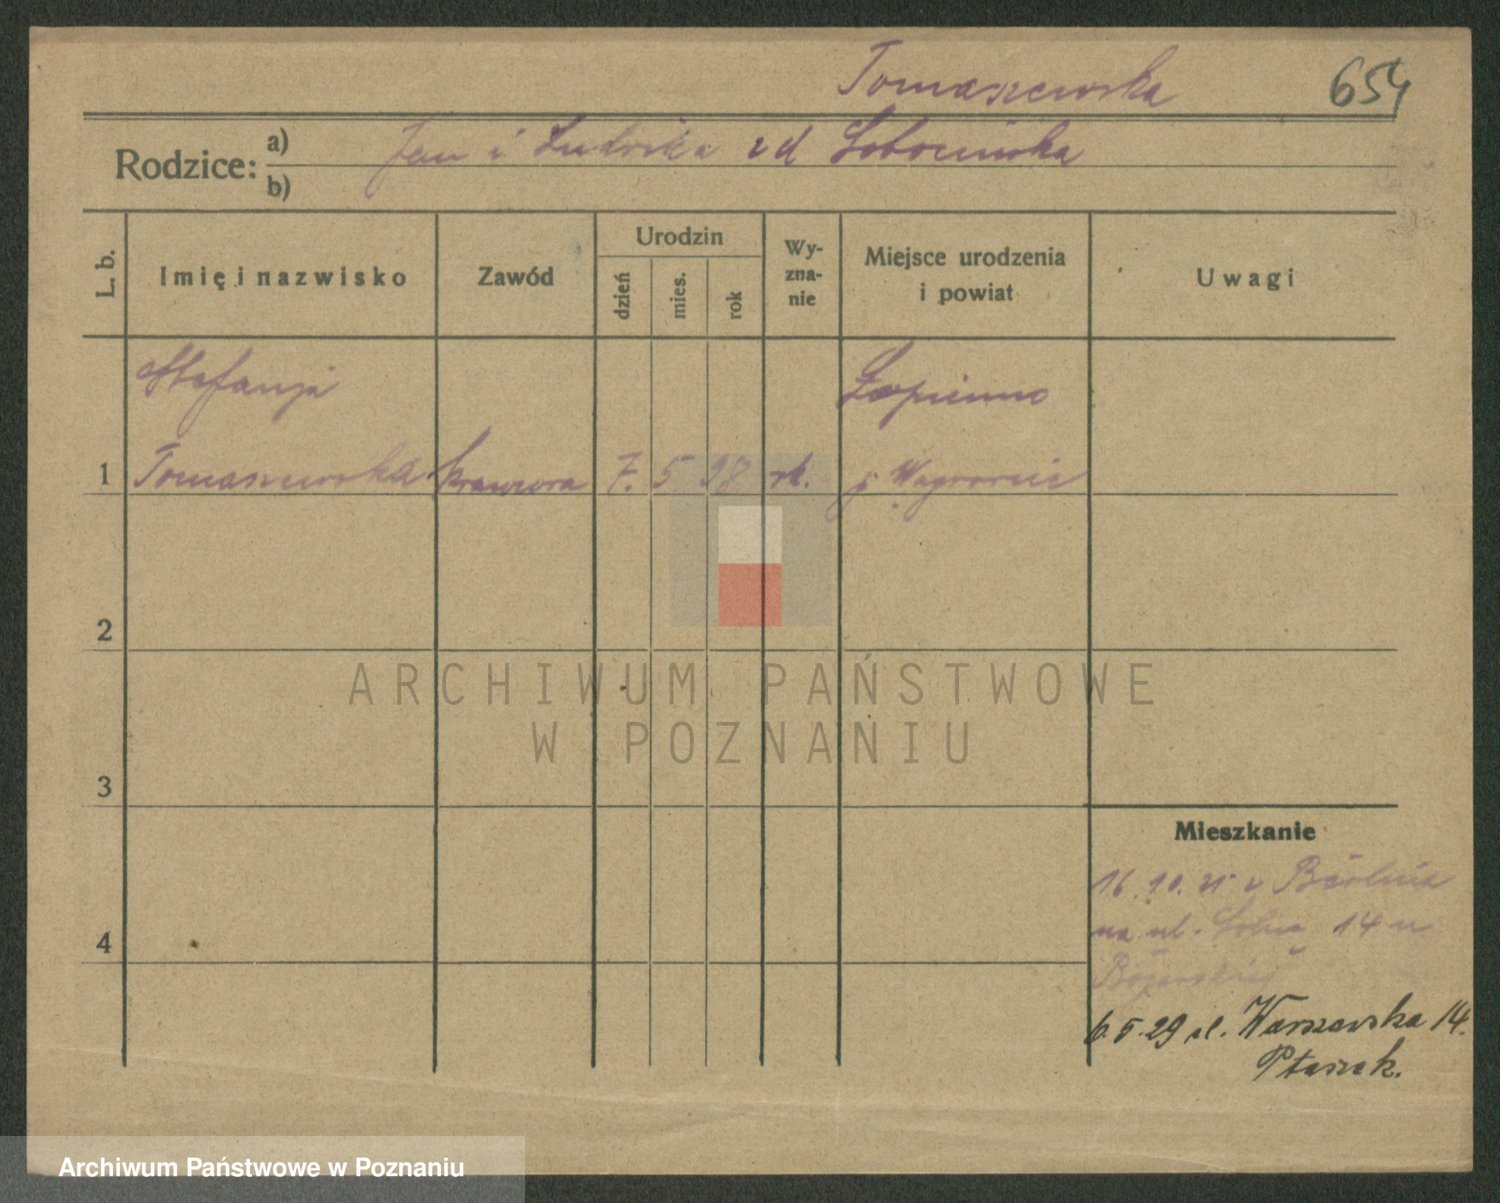 Tomaszewska 654
Rodzice: a) Jan i Ludwika zd Sobocińska
b)
L. b.
Imię i nazwisko
Zawód
Urodzin
dzień
mies.
rok
Wy-
zna-
nie
Miejsce urodzenia
i powiat
Uwagi
Stefanja
Tomaszewska
krawcowa
7. 5 98
rk.
Łopienno
p. Wągrowiec
1
2
3
4
Mieszkanie
16.10.
na ul. 14 u
6.5.29 ul. Warszawska 14.
Ptaszak.
ARCHIWUM PAŃSTWOWE
W POZNANIU
Archiwum Państwowe w Poznaniu